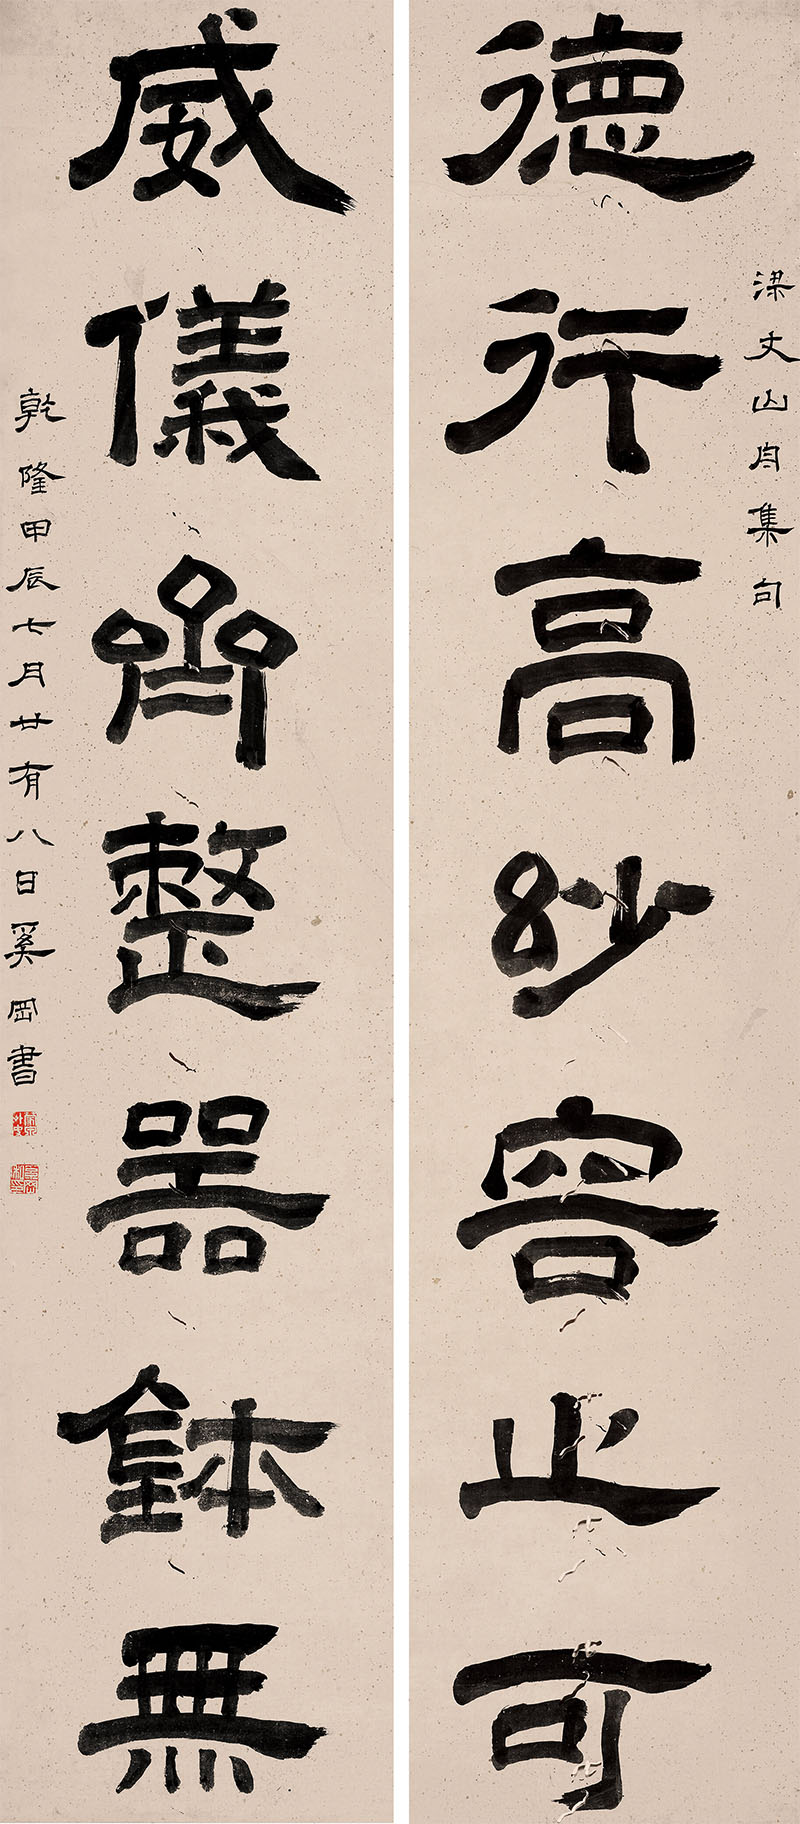 梁文山舟集句
德行高紗容止可
威儀齊整器鉢無
乾隆甲辰七月廿有八日奚岡書